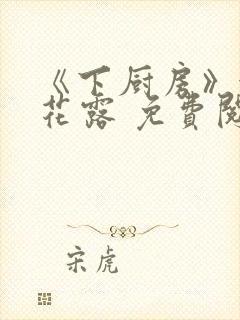 《下厨房》
花露 免費閱
宋虎